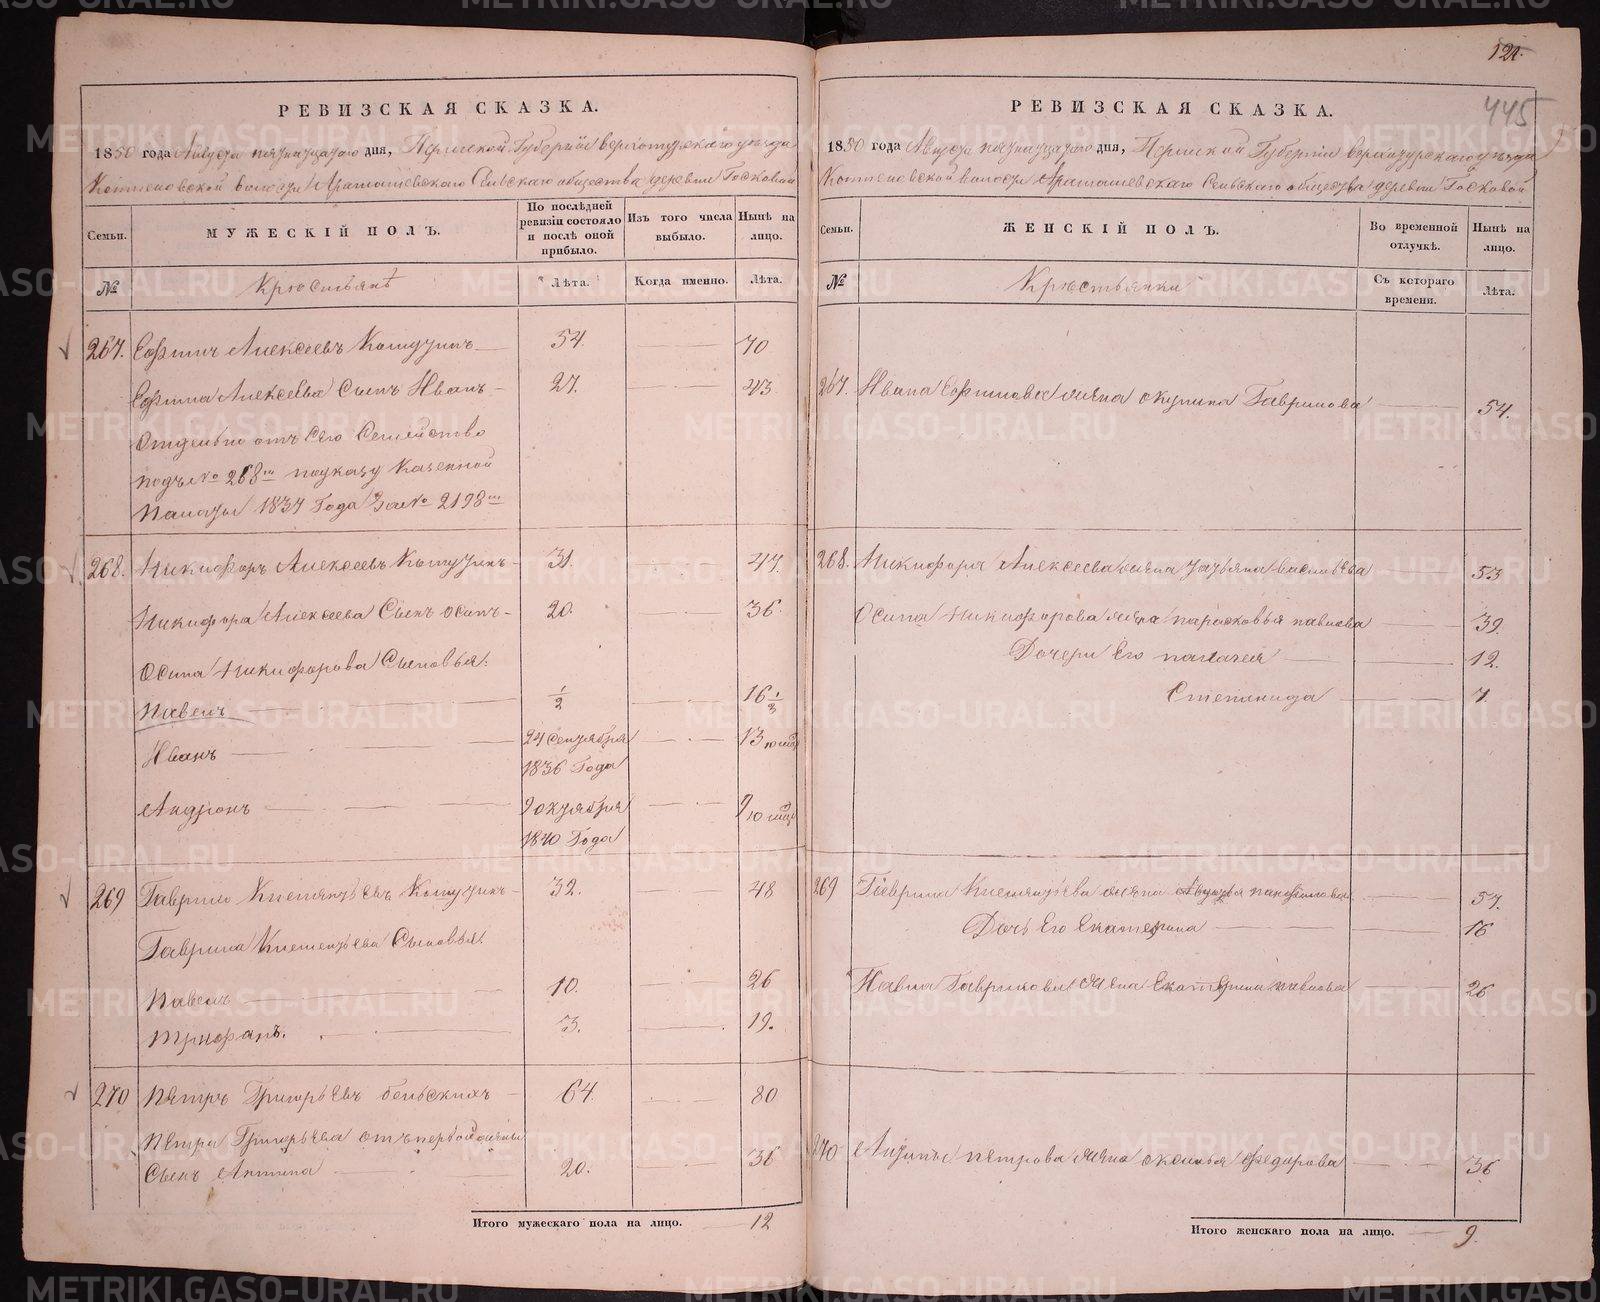 121.
445
РЕВИЗСКАЯ СКАЗКА.
1850 года Августа пятнатцатого дня, Пермской Губернии верхотурского уезда
волости Арамашевского Сельского общества деревни Госковой
Семьи.
МУЖЕСКІЙ ПОЛЪ.
По послѣдней ревизіи состояло и послѣ оной прибыло.
Изъ того числа выбыло.
Нынѣ на лицо.
№
Крестьянѣ
Лѣта.
Когда именно.
Лѣта.
267. Ефимъ Алексеевъ 54. 70
Ефима Алексеева Сынъ Иванъ 27. 43
Отдельно отъ Сего Семейство
подъ № 268м по указу Казенной
Палаты 1837 Года За № 2198м
268. Никифоръ Алексеевъ 31. 47.
Никифора Алексеева Сынъ Осипъ 20. 36.
Осипа Никифорова Сыновья:
Павелъ 1/2 16 1/2
Иванъ 24 Сентября 13
1836 Года
Андронъ 9 октября 9
1840 Года
269 Гаврило Климантьевъ 32. 48
Гаврила Клементьева Сыновья:
Павелъ 10. 26
Трифанъ. 3. 19.
270 Петръ Григорьевъ бельскихъ 64. 80
Петра Григорьева отъ первой жены
Сынъ Антипа 20. 36
Итого мужескаго пола на лицо. 12
РЕВИЗСКАЯ СКАЗКА.
1850 года Августа пятнатцатого дня, Пермской Губернии верхотурского уезда
волости Арамашевского Сельского общества деревни Госковой
Семьи.
ЖЕНСКІЙ ПОЛЪ.
Во временной отлучкѣ.
Нынѣ на лицо.
№
Крестьянки
Съ котораго времени.
Лѣта.
267. Ивана Ефимова жена Акулина Гаврилова 54.
268. Никифора Алексеева жена Татьяна васильева 53
Осипа Никифорова жена парасковья павлова 39.
Дочери Его палагея 12.
Степанида 7.
269 Гаврила Клементьева жена 57.
Дочь Его Екатерина 16
Павла Гаврилова жена Екатерина павлова 26
270 Антипы петрова жена оксинья федорова 36
Итого женскаго пола на лицо. 9.
METRIKI.GASO-URAL.RU